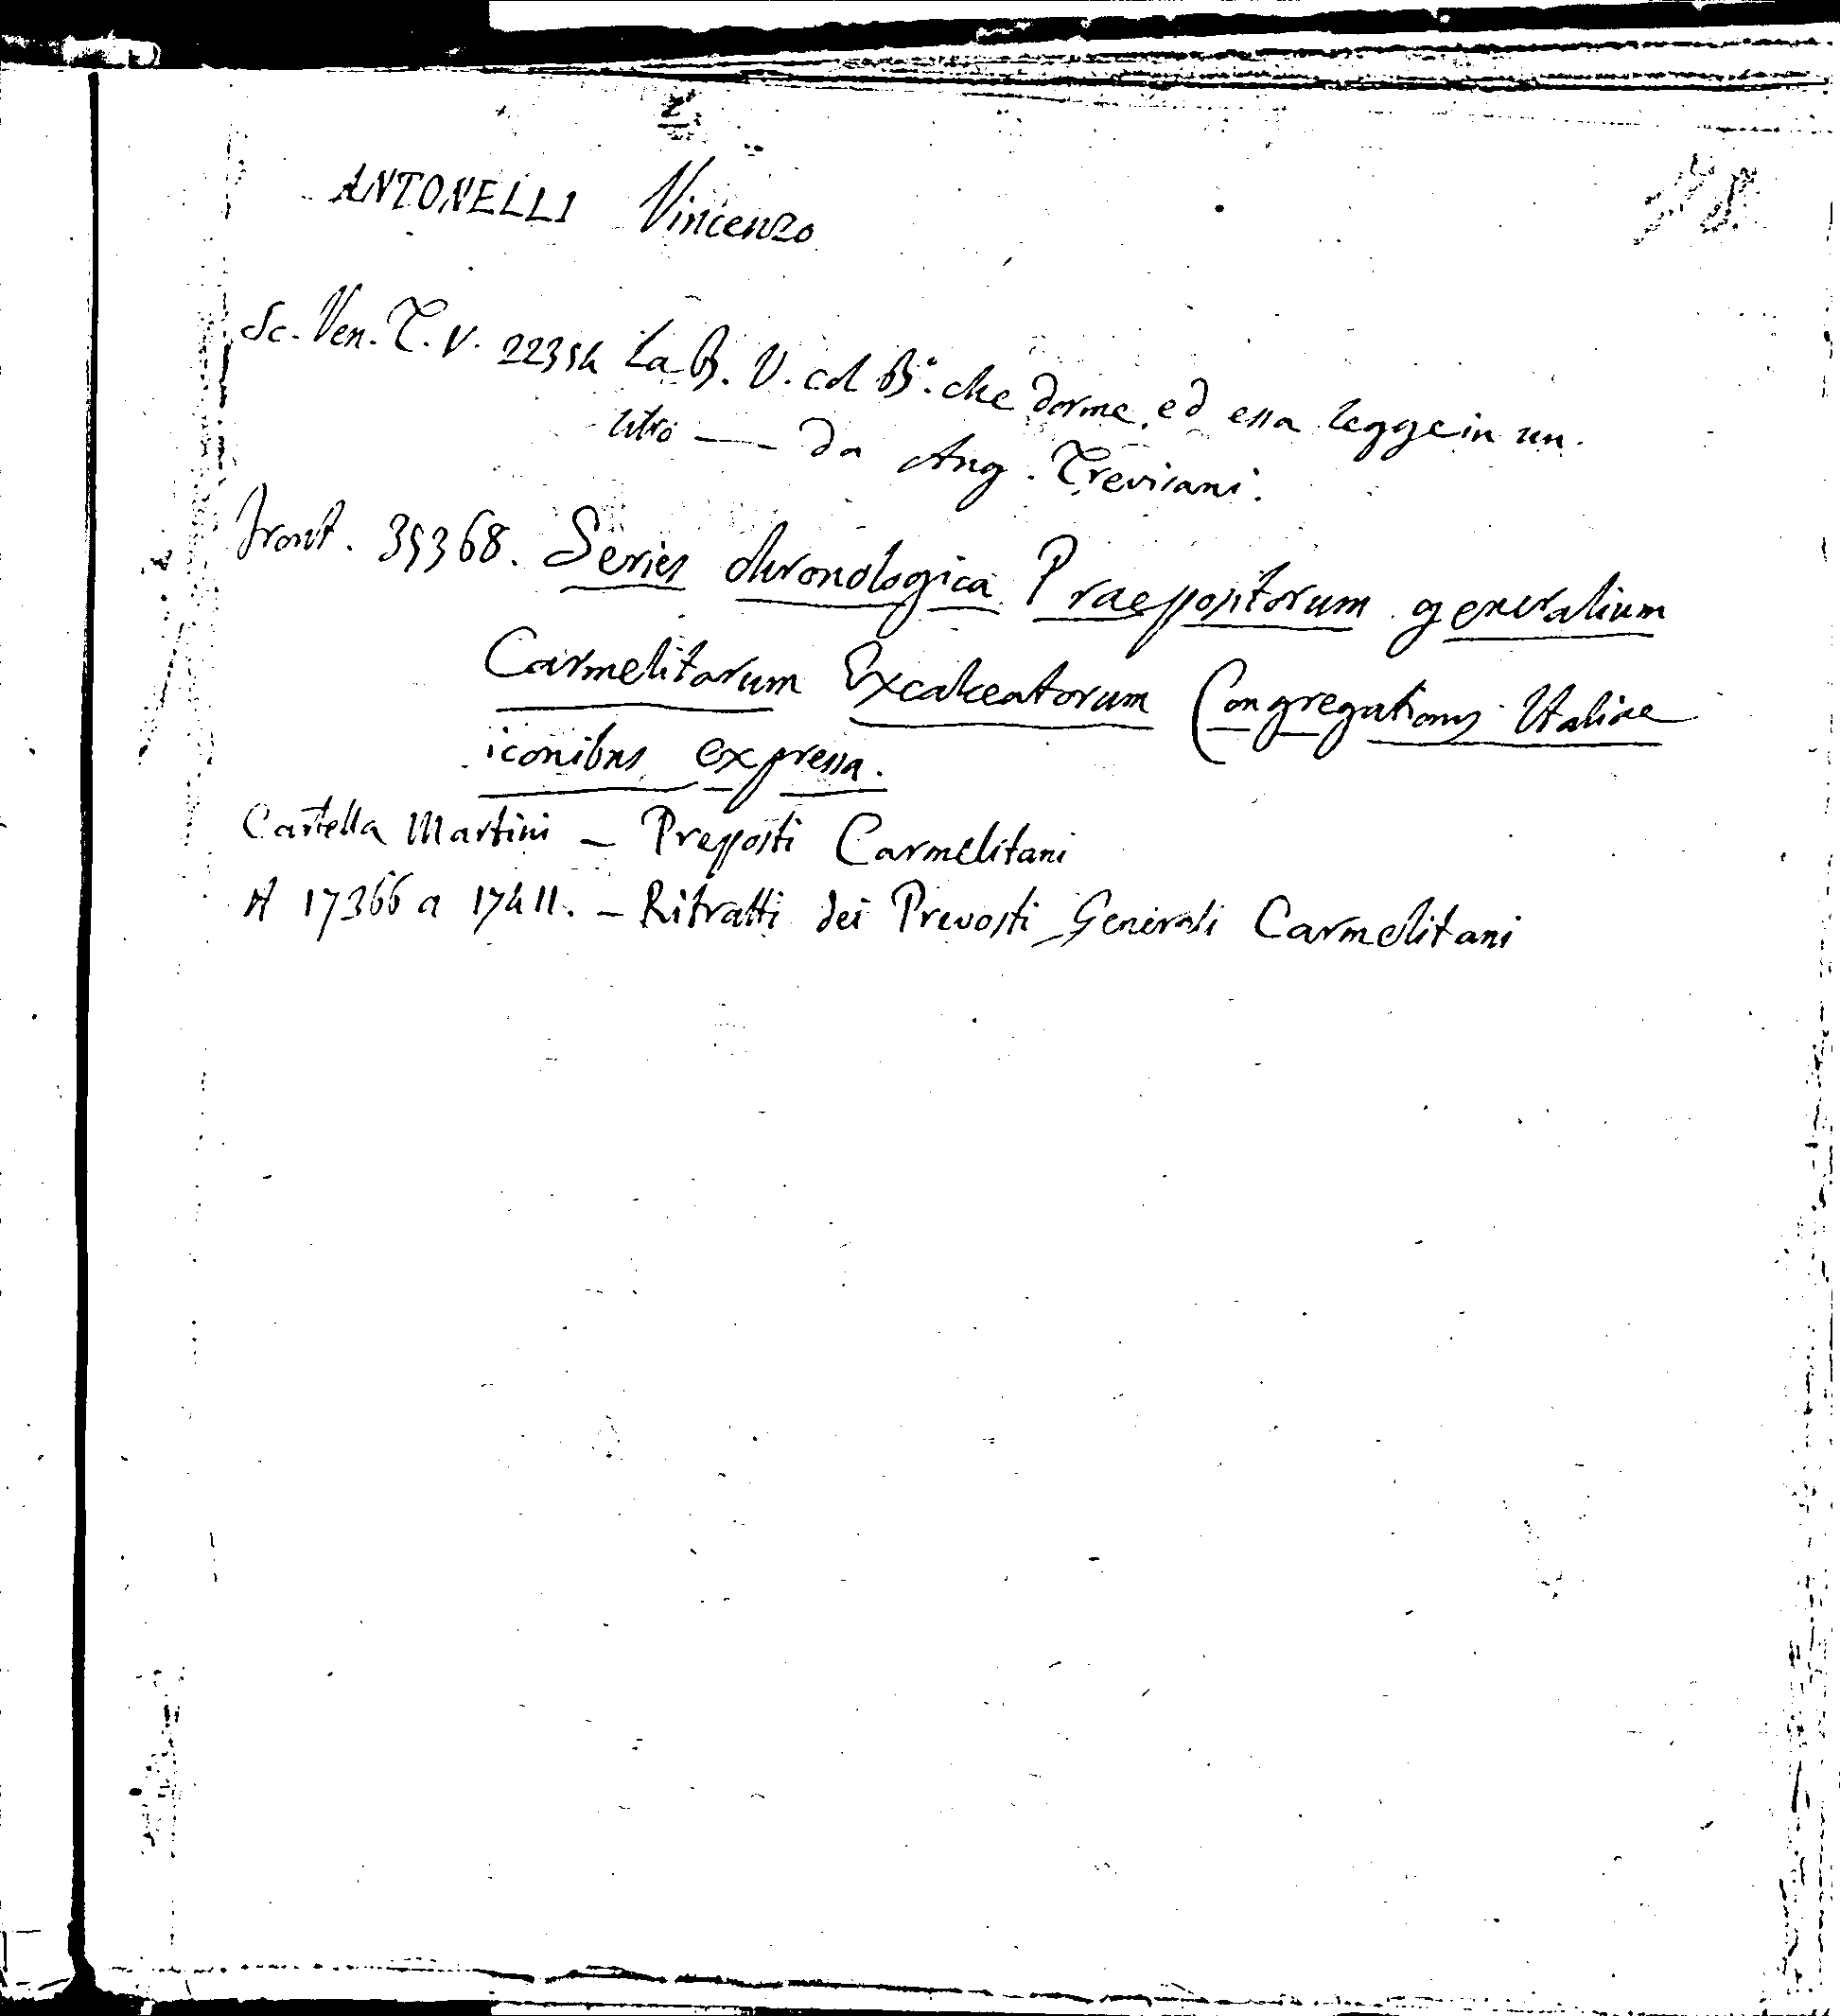 ANTONELLI Vincenzo
Sc. Ven. T. V. 22354 La B. V. col B.º che dorme, ed essa legge in un
libro — da Ang. Trevisani.
Front. 39368. Series chronologica Praepositorum generalium
Carmelitarum Excalceatorum Congregationis Italiae
iconibus expressa.
Cartella Martini – Preposti Carmelitani
A 17366 a 17411. – Ritratti dei Prevosti Generali Carmelitani